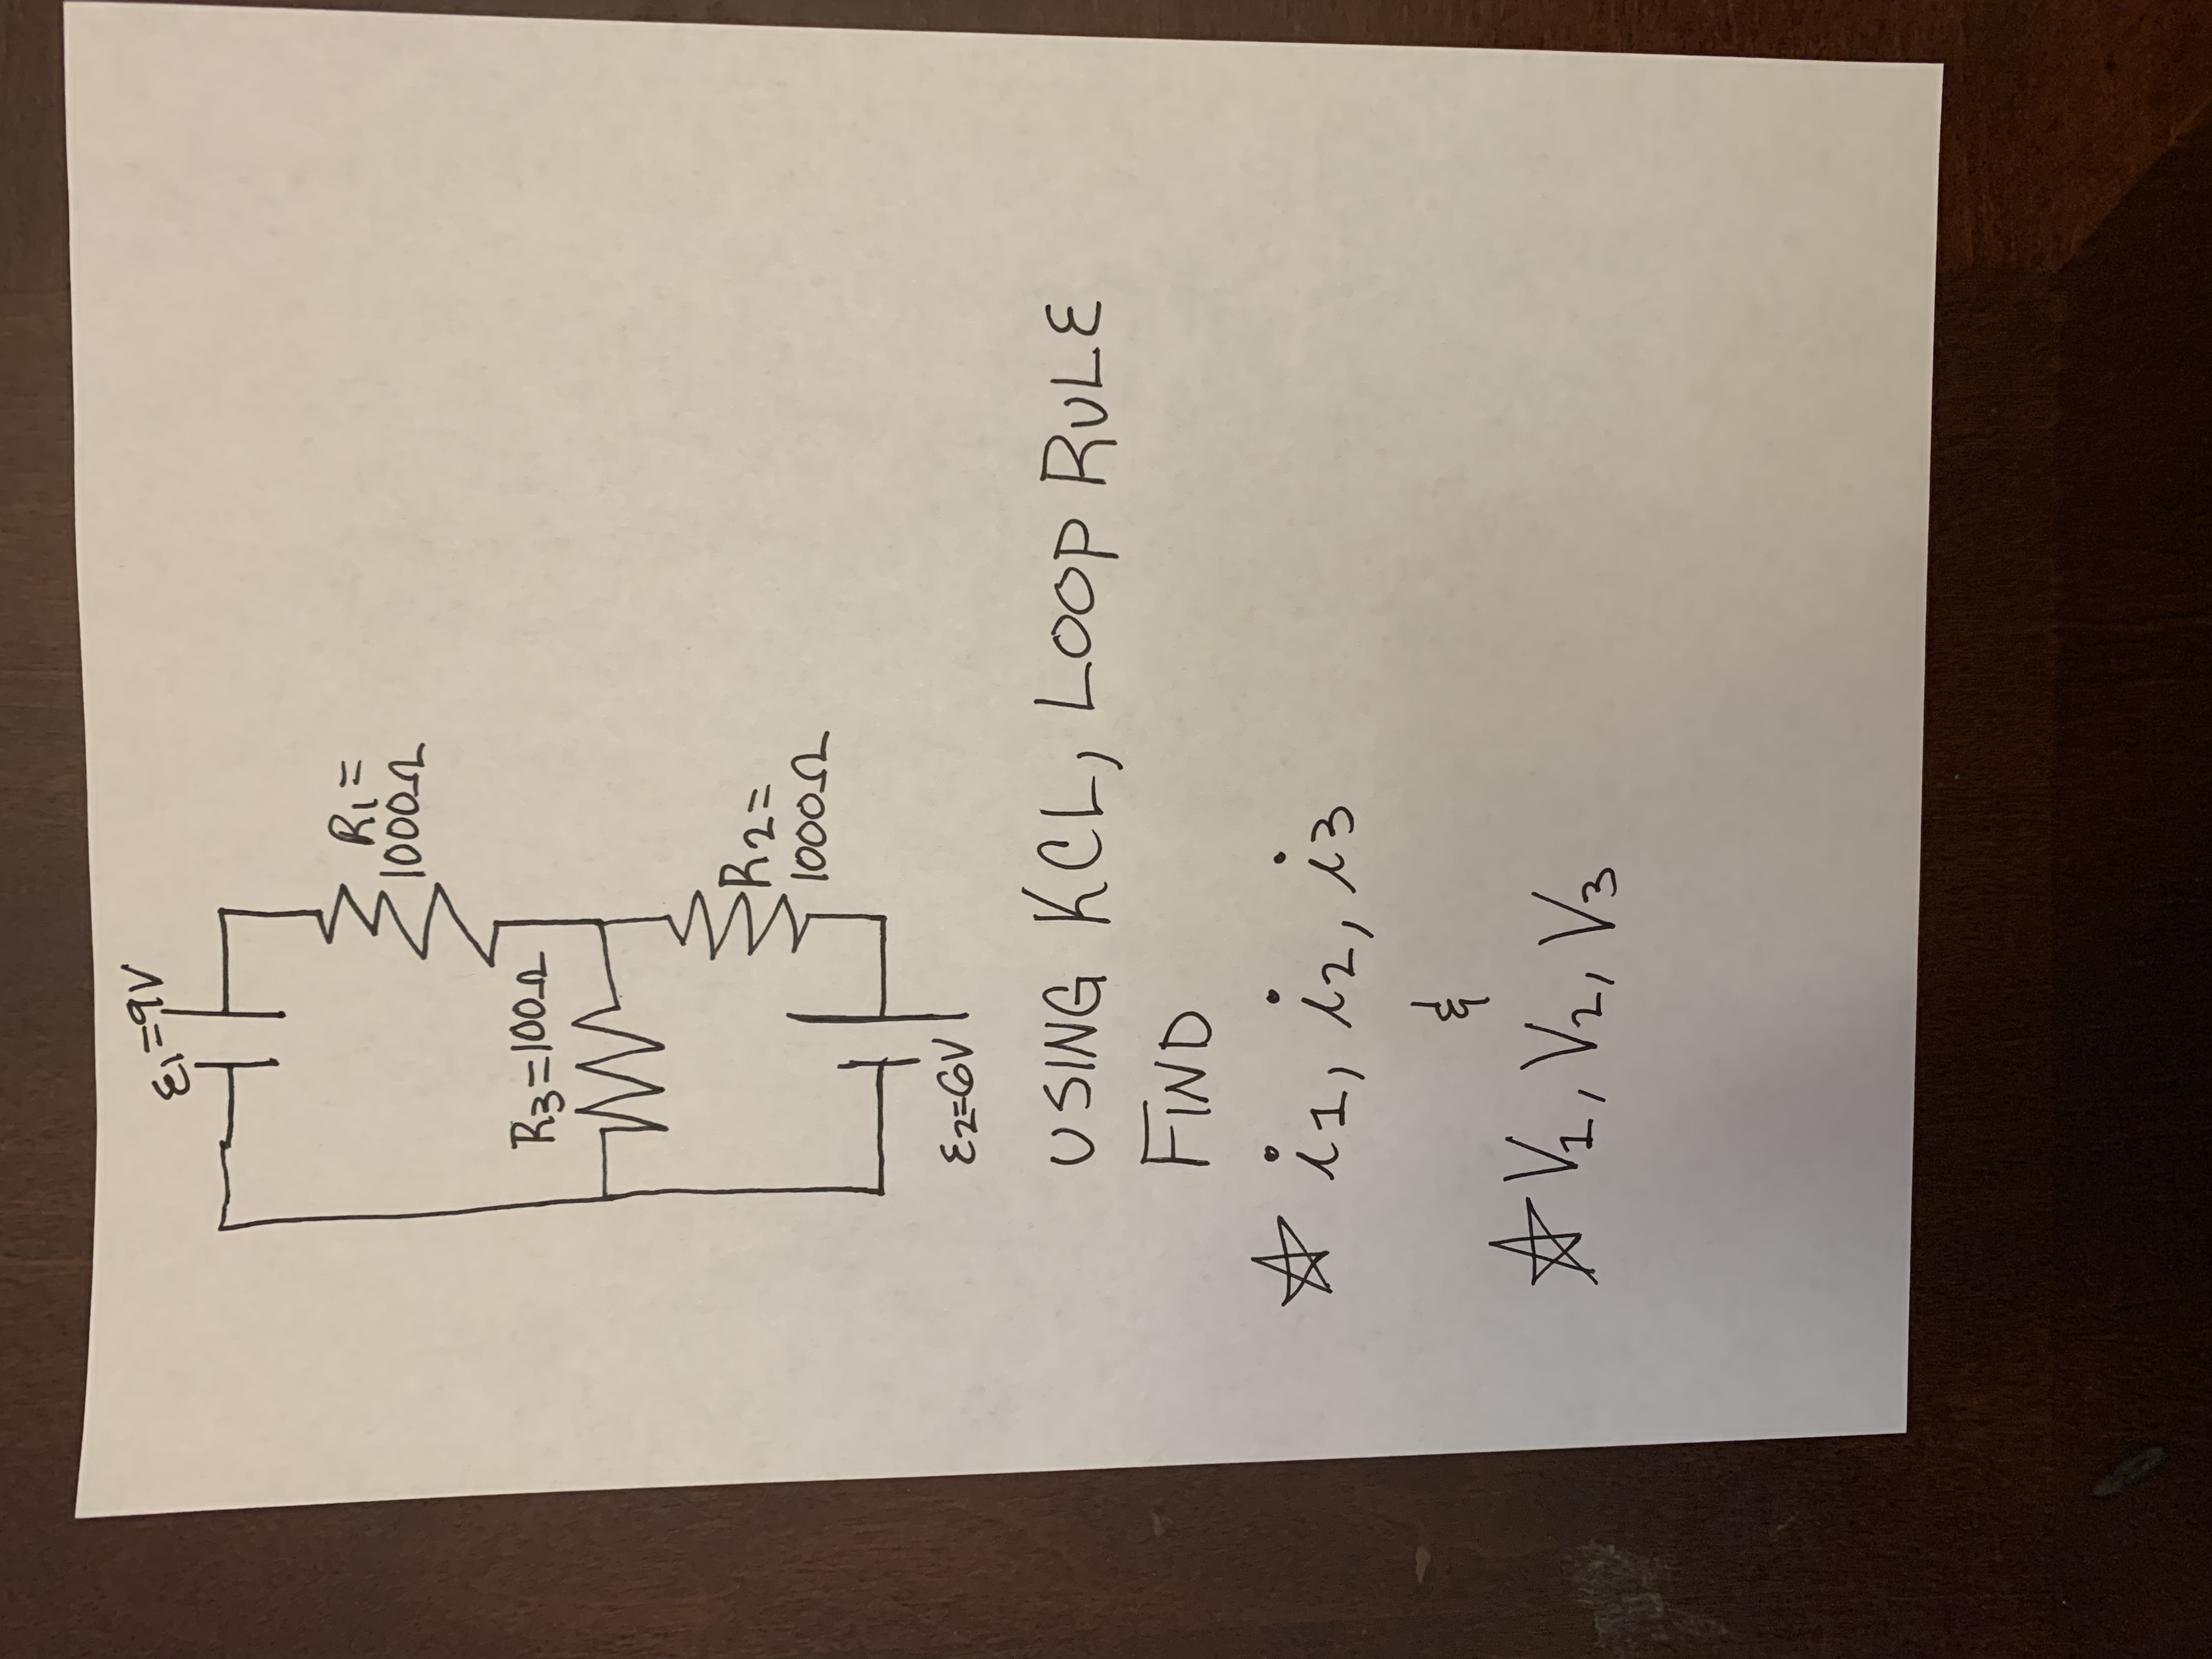 ε1=9V
R1=
1000Ω
R3=100Ω
R2=
1000Ω
ε2=6V
USING KCL, LOOP RULE
FIND
☆ i1, i2, i3
&
☆ V1, V2, V3